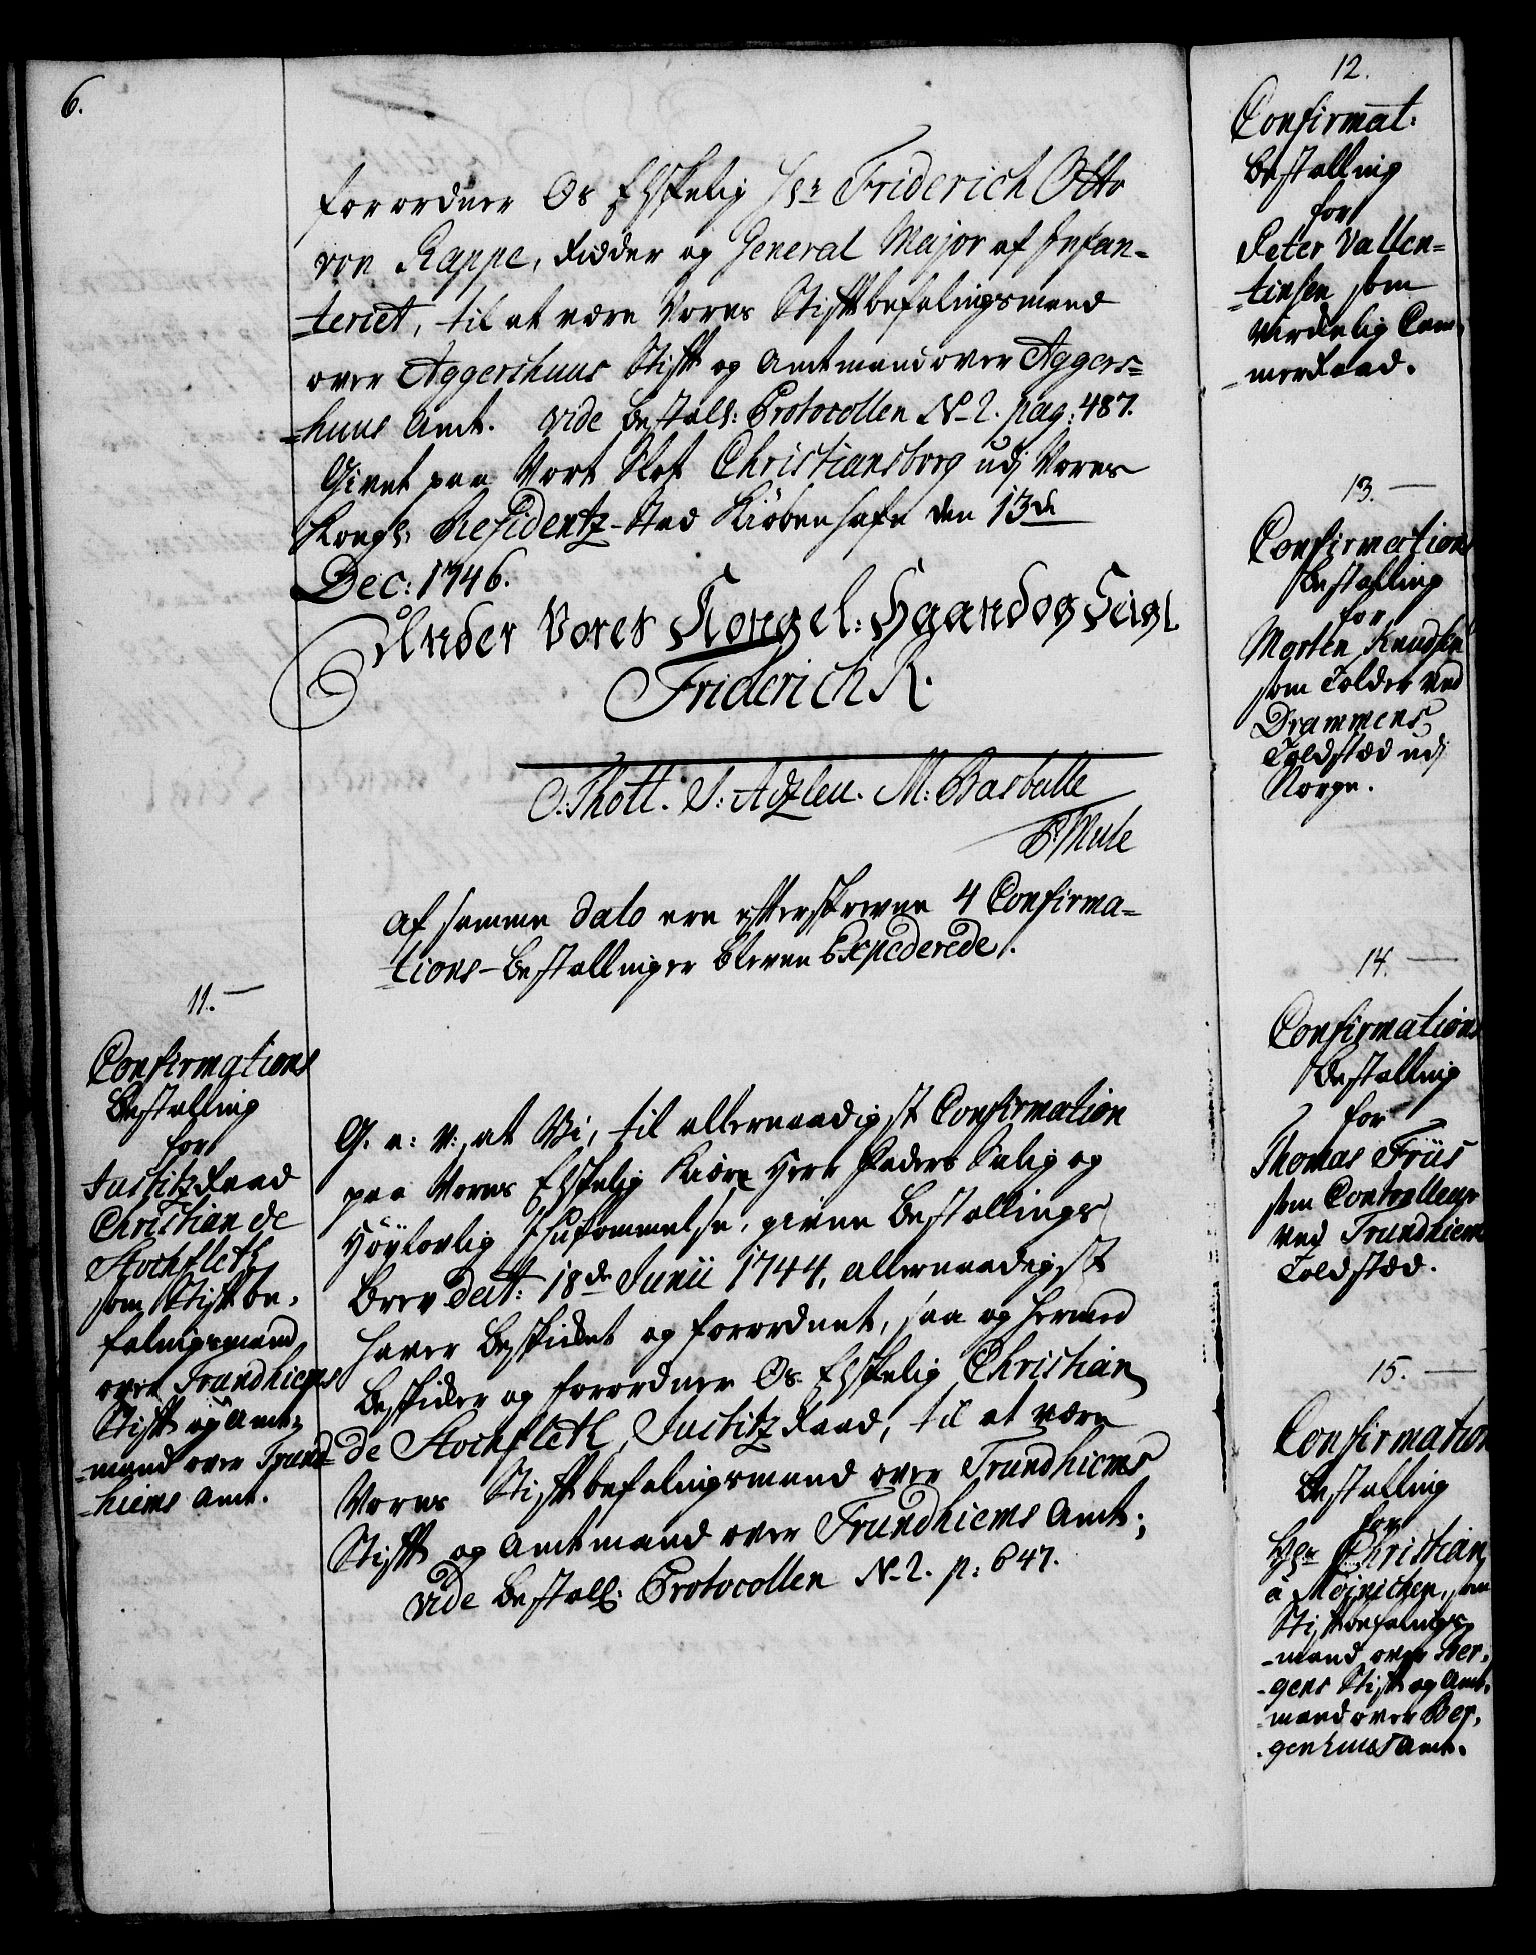 6.
forordner Os Elskelig Hr Friderich Otto
von Rappe, Ridder og General Major af Infan-
-teriet, til at være Vores Stiftbefalingsmand
over Aggershuus Stift og Amtmand over Aggers-
-huus Amt. vide Bestall: Protocollen No 2. pag: 487.
Givet paa Vort Slot Christiansborg udj Vores
Kongl: Residentz-Stad Kiøbenhafn den 13de
Dec: 1746.
Under Vores Kongel: Haand og Seigl
Friderich R.
O. Thott. S: Adzleu. M: Basballe
P. Mule
Af samme dato ere efterskrevne 4 Confirma-
-tions-Bestallinger bleven Expederede.
11.
Confirmations
Bestalling
for
Justitz Raad
Christian de
Stockfleth
som Stiftbe-
falingsmand
over Trundhiems
Stift og Amt-
-mand over Trund-
-hiems Amt.
G. a: v:, at Vi, til allernaadigst Confirmation
paa Vores Elskelig Kiære Herr Faders Salig og
Høylovlig Ihukommelse, givne Bestallings
Brev dat: 18de Junii 1744, allernaadigst
haver Beskikket og forordnet, saa og hermed
Beskikker og forordner Os Elskelig Christian
de Stockfleth, Justitz Raad, til at være
Vores Stiftbefalingsmand over Trundhiems
Stift og Amtmand over Trundhiems Amt;
vide Bestall: Protocollen No 2. p: 647.
12.
Confirmat:
Bestalling
for
Peter Vallen-
-tinsen som
virkelig Cam-
-merraad.
13.
Confirmations
Bestalling
for
Morten Knudsen
som Tolder ved
Drammens
Toldstæd udj
Norge.
14.
Confirmations
Bestalling
for
Thomas Friis
som Controlleur
ved Trundhiems
Toldstæd.
15.
Confirmation
Bestalling
for
Hr Christian
a Møinichen, som
Stiftbefalings-
-mand over Ber-
-gens Stift og Amt-
-mand over Ber-
-genhuus Amt.